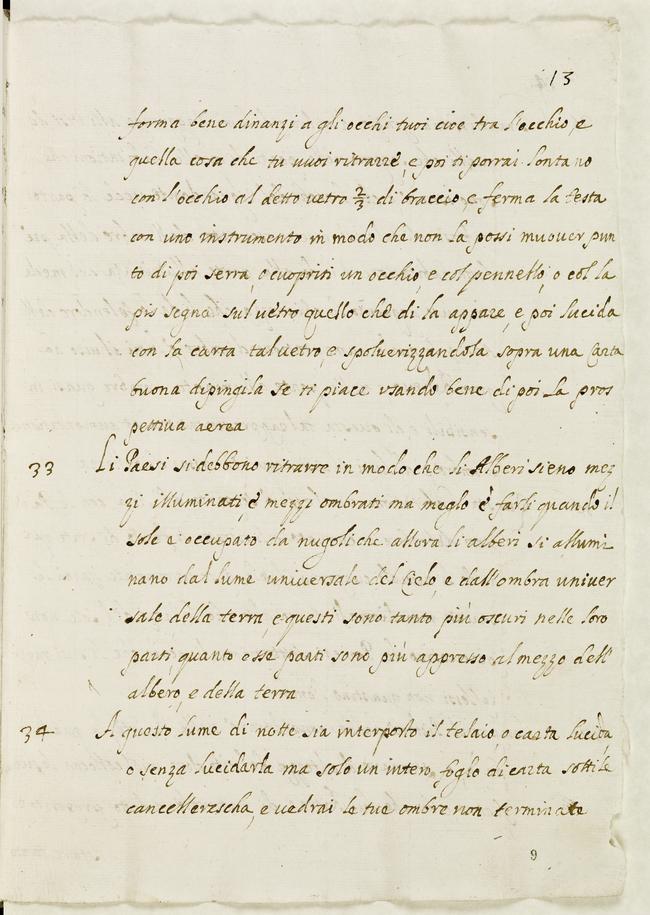 13
forma bene dinanzi a gli occhi tuoi cioe tra l'occhio, e
quella cosa che tu vuoi ritrarre, e poi ti porrai lontano
con l'occhio al detto vetro 2/3 di braccio, e ferma la testa
con uno instrumento in modo che non la possi muover pun
to di poi serra, o cuopriti un occhio e col pennello, o col la
pis segna sul vetro quello che di la appare, e poi lucida
con la carta tal vetro, e spolverizzandola sopra una carta
buona dipingila se ti piace usando bene di poi la pros
pettiva aerea
33 Li Paesi si debbono ritrarre in modo che li Alberi sieno mez
zi illuminati, e mezzi ombrati ma meglo è farli quando il
sole e occupato da nugoli che allora li alberi si allumi
nano dal lume universale del Cielo, e dall'ombra univer
sale della terra, e questi sono tanto più oscuri nelle loro
parti, quanto esse parti sono più appresso al mezzo dell'
albero, e della terra
34 A questo lume di notte sia interposto il telaio, o carta lucida,
o senza lucidarla ma solo un intero foglio di carta sottile
cancellerescha, e vedrai le tue ombre non terminate
9